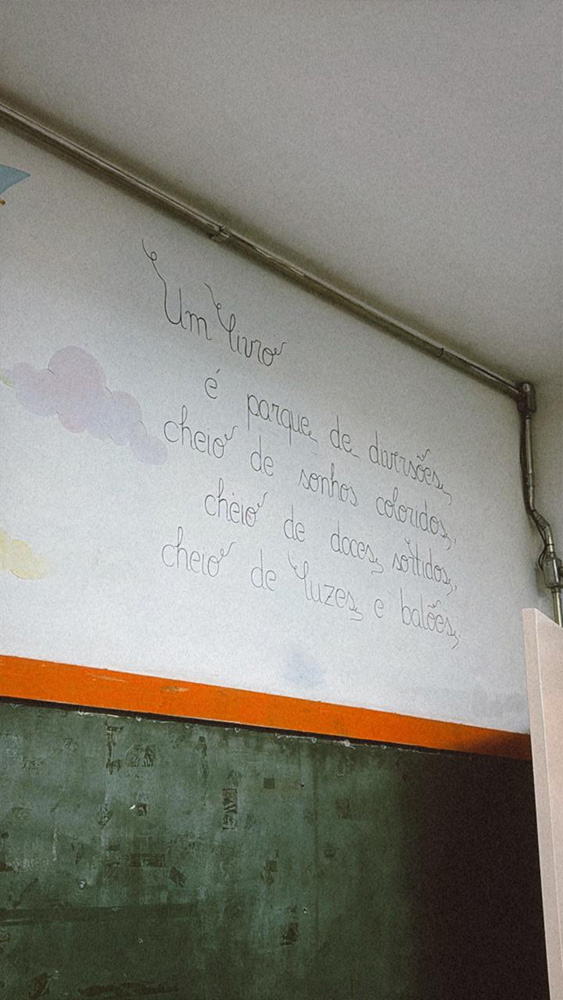 Um livro
é parque de diversões,
cheio de sonhos coloridos,
cheio de doces sortidos,
cheio de luzes e balões,